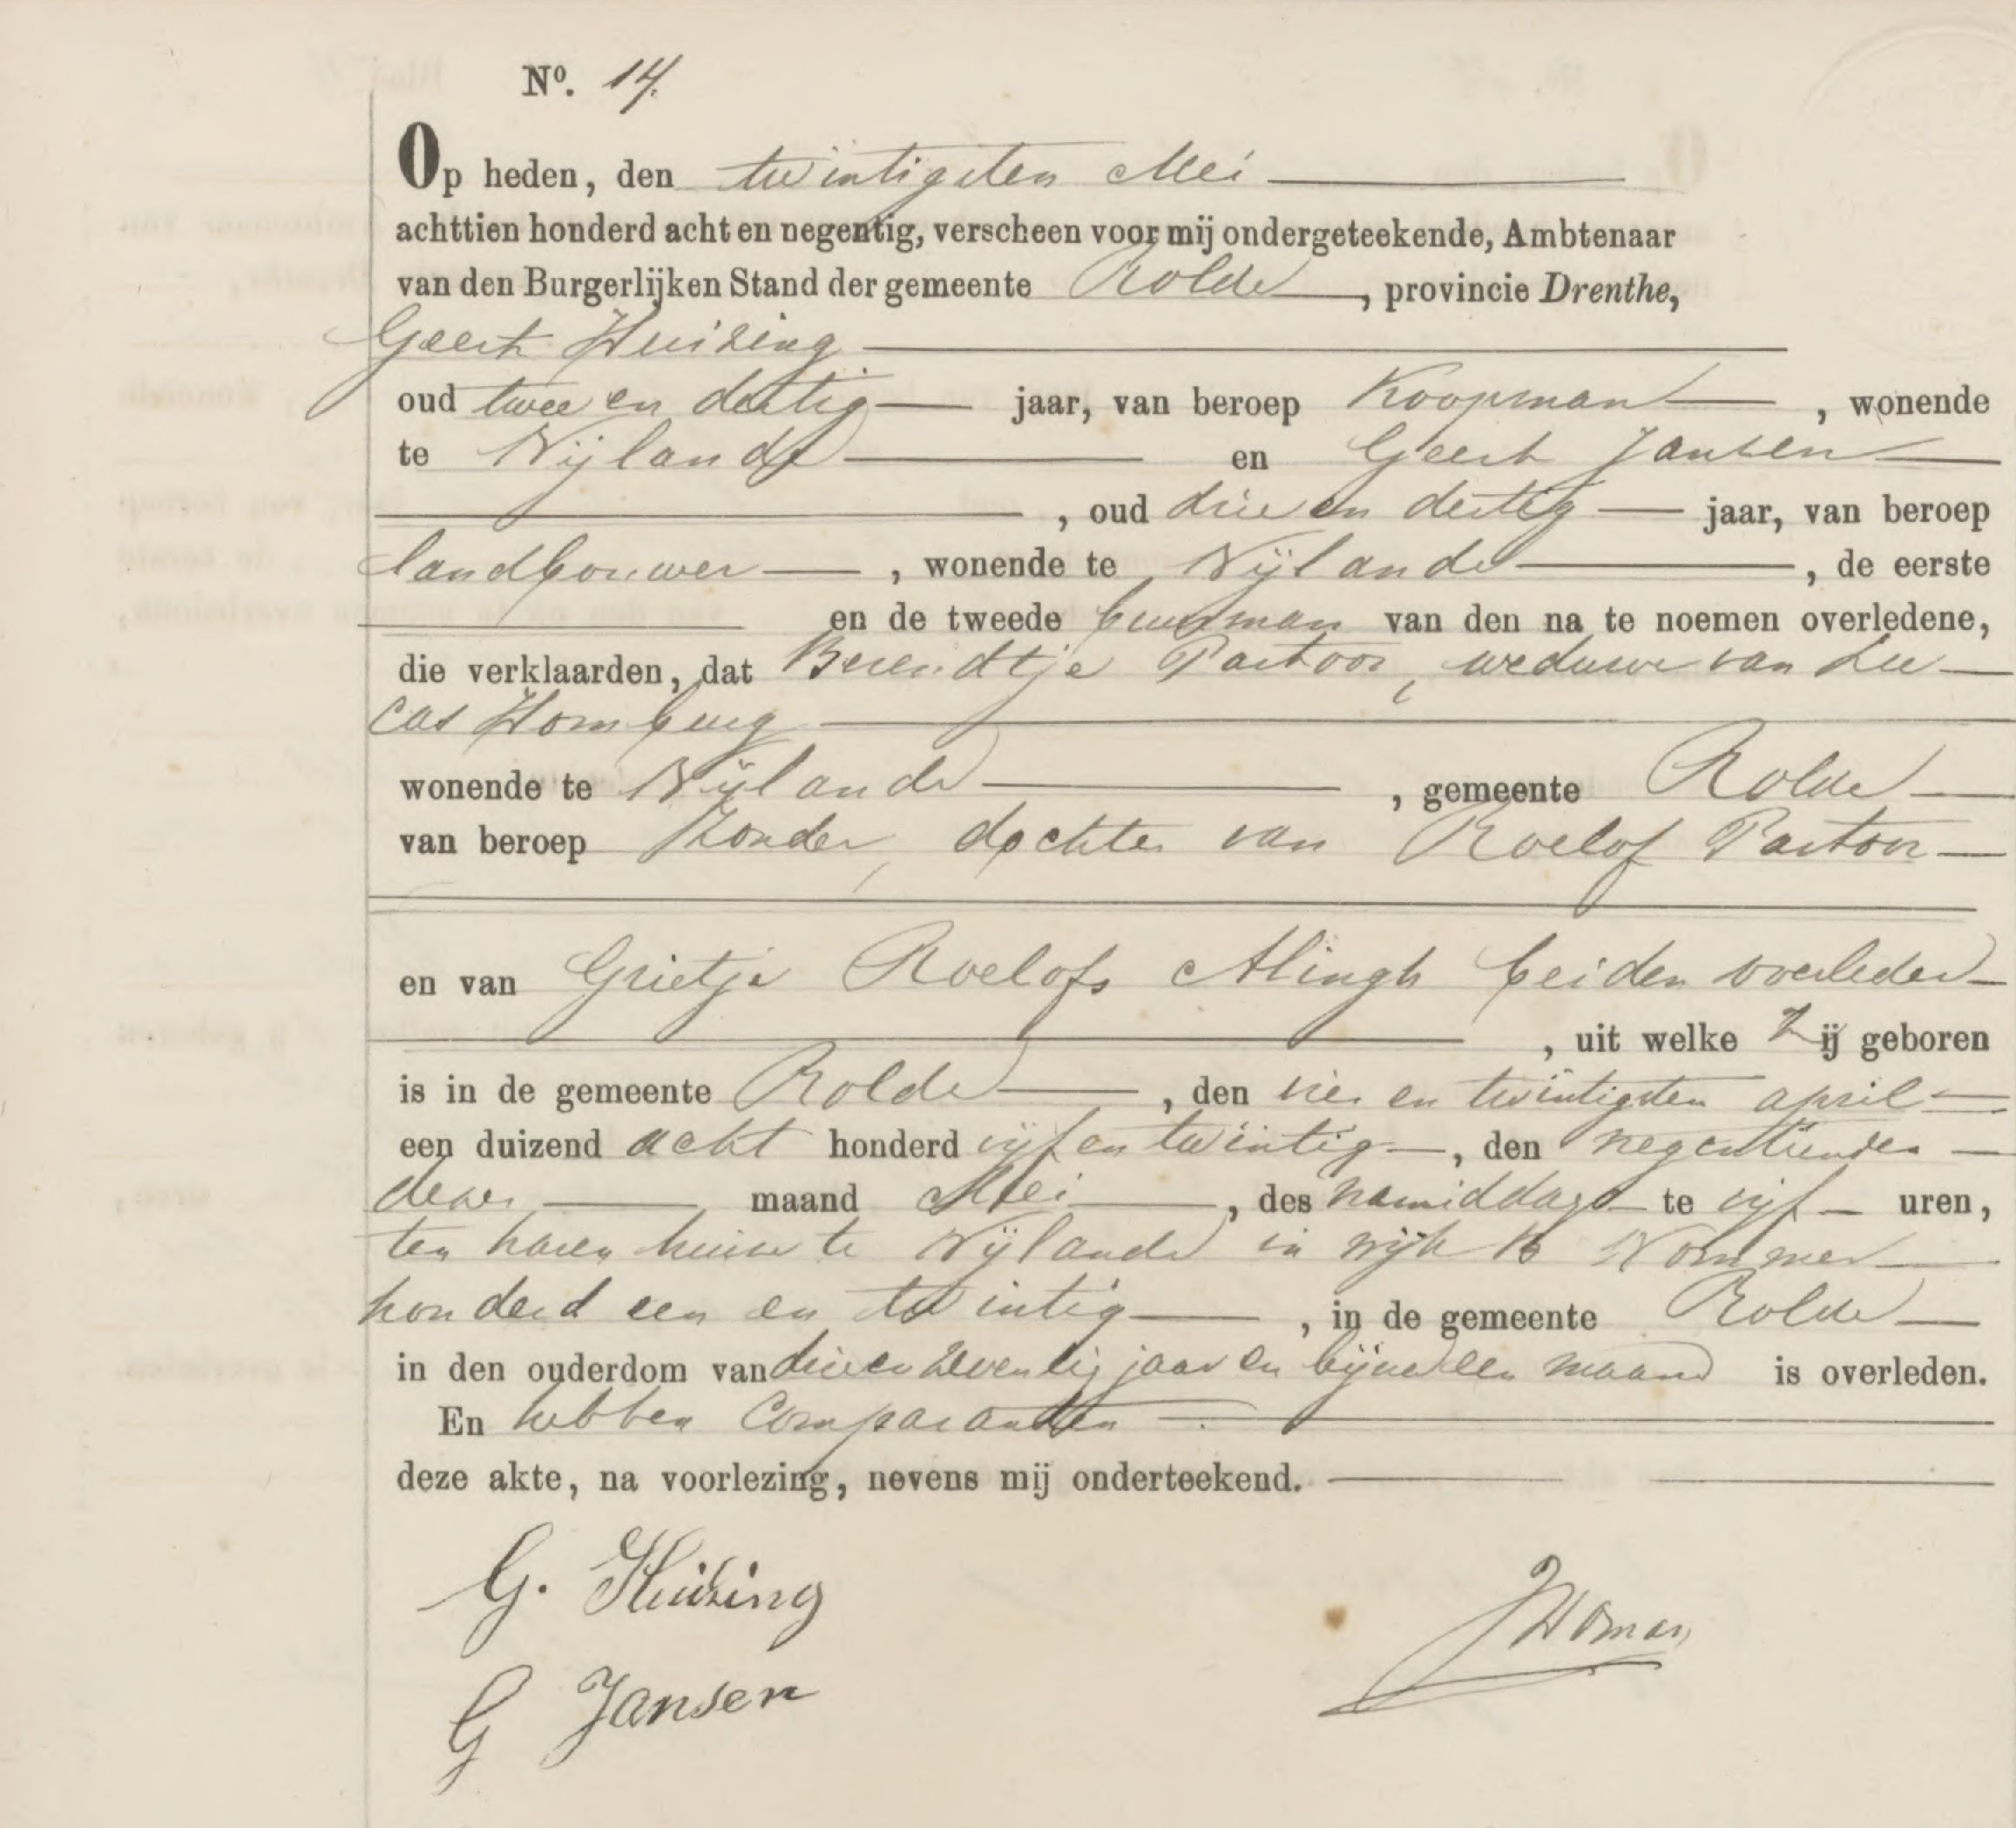 Nº. 14.
Op heden, den twintigsten Mei
achttien honderd acht en negentig, verscheen voor mij ondergeteekende, Ambtenaar
van den Burgerlijken Stand der gemeente Rolde, provincie Drenthe,
Geert Huizing
oud twee en dertig jaar, van beroep Koopman, wonende
te Nijlande en Geert Jansen
, oud drie en dertig jaar, van beroep
landbouwer, wonende te Nijlande, de eerste
en de tweede buurman van den na te noemen overledene,
die verklaarden, dat Berendtje Pastoor, weduwe van Lu-
cas Homburg
wonende te Nijlande, gemeente Rolde
van beroep Zonder, dochter van Roelof Pastoor
en van Grietje Roelofs Alingh beiden overleden
, uit welke Zij geboren
is in de gemeente Rolde, den vier en twintigsten april
een duizend acht honderd vijf en twintig, den negentienden
dezer maand Mei, des namiddags te vijf uren,
ten haren huize te Nijlande in wijk B Nommer
honderd een en twintig, in de gemeente Rolde
in den ouderdom van drie en zeventig jaar en bijna een maand is overleden.
En hebben Comparanten
deze akte, na voorlezing, nevens mij onderteekend.
G. Huizing
JHoman
G Jansen